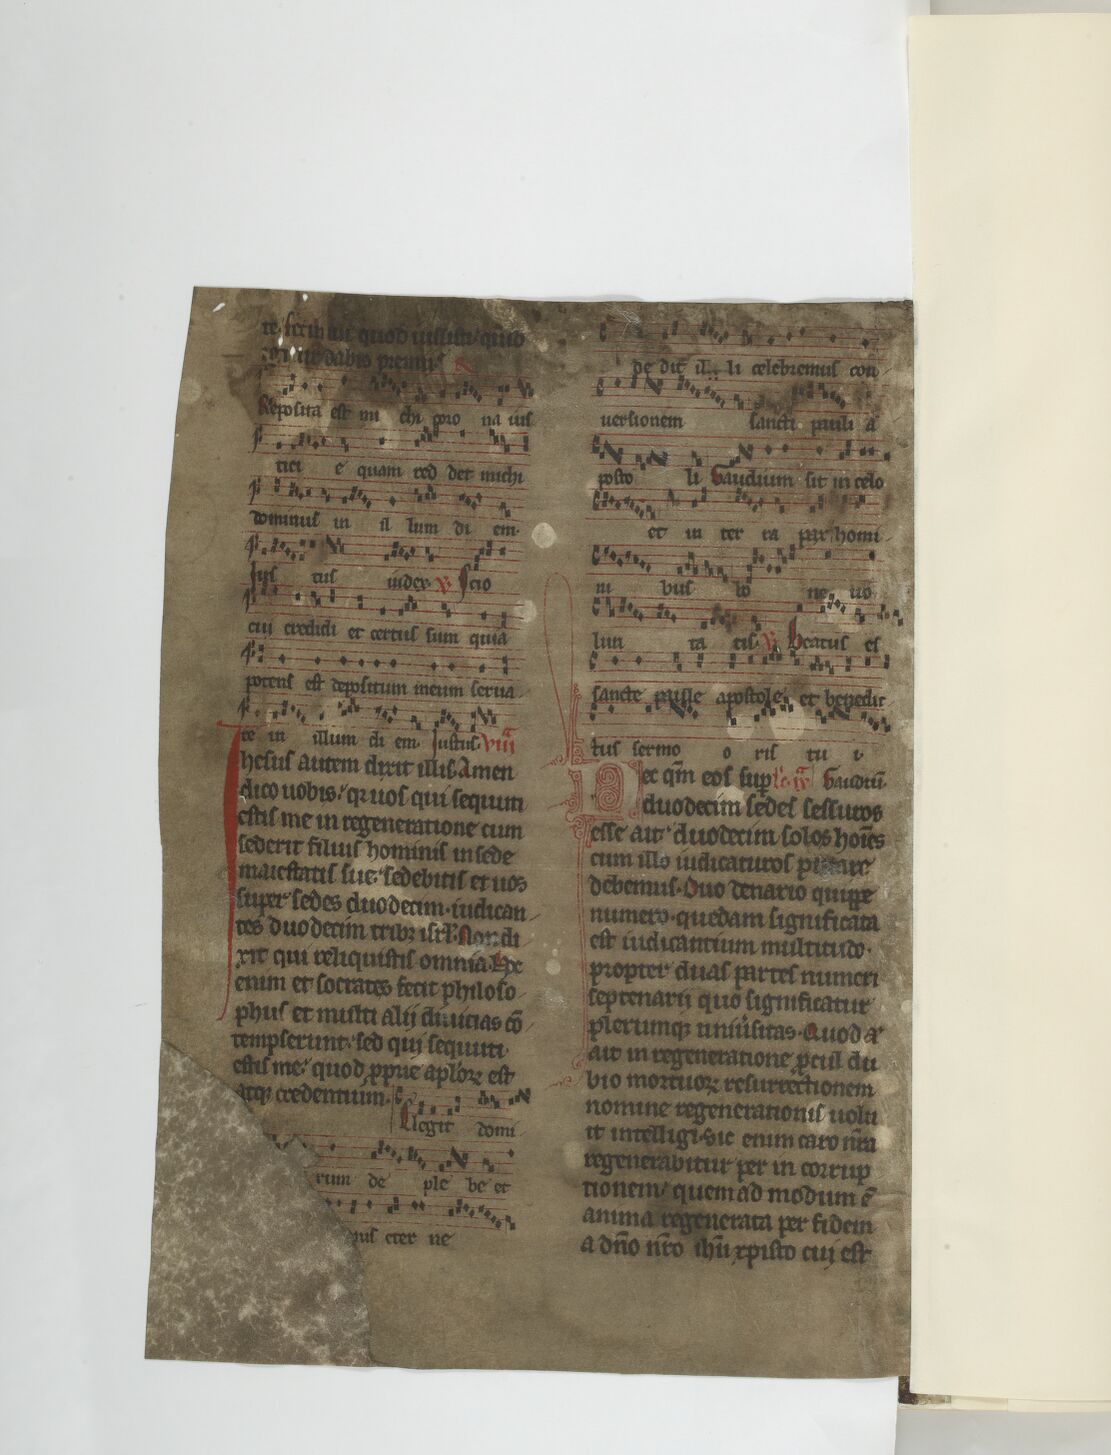 quod iussisti quid
dabis premii
Reposita est mi chi coro na ius
ticie quam red det michi
dominus in il lum di em
Jus tus iudex ꝟ Scio
cui credidi et certus sum quia
potens est depositum meum serua
re in illum di em Justus viijᵃ
Ihesus autem dixit illis Amen
dico uobis qr uos qui secuti
estis me in regeneratione cum
sederit filius hominis in sede
maiestatis sue sedebitis et uos
super sedes duodecim iudican
tes duodecim tribꝫ isrl Non di
xit qui reliquistis omnia Hoc
enim et socrates fecit philoso
phus et multi alij diuicias cō
tempserunt sed qui secuti
estis me quod ꝓprie apl'oꝝ est
atqꝫ credentium
Elegit domi
rum de ple be et
eter ne
de dit il li celebremus con
uersionem sancti pauli a
posto li Gaudium sit in celo
et in ter ra pax homi
ni bus bo ne uo
lun ta tis ꝟ Beatus es
sancte paule apostole et benedic
tus sermo o ris tu i
ec qm̄ eos suꝑ ixᵃ Gaudiū
duodecim sedes sessuros
esse ait duodecim solos hoīes
cum illo iudicaturos putare
debemus Duo denario quippe
numero quedam significata
est iudicantium multitudo
propter duas partes numeri
septenarii quo significatur
plerumqꝫ uniūsitas Quod aͬ
ait in regeneratione ꝓcul du
bio mortuoꝝ resurrectionem
nomine regenerationis uolu
it intelligi Sic enim caro nr̄a
regenerabitur per in corrup
tionem quem ad modum ē
anima regenerata per fidem
a dn̄o nr̄o ihū xpisto cui est